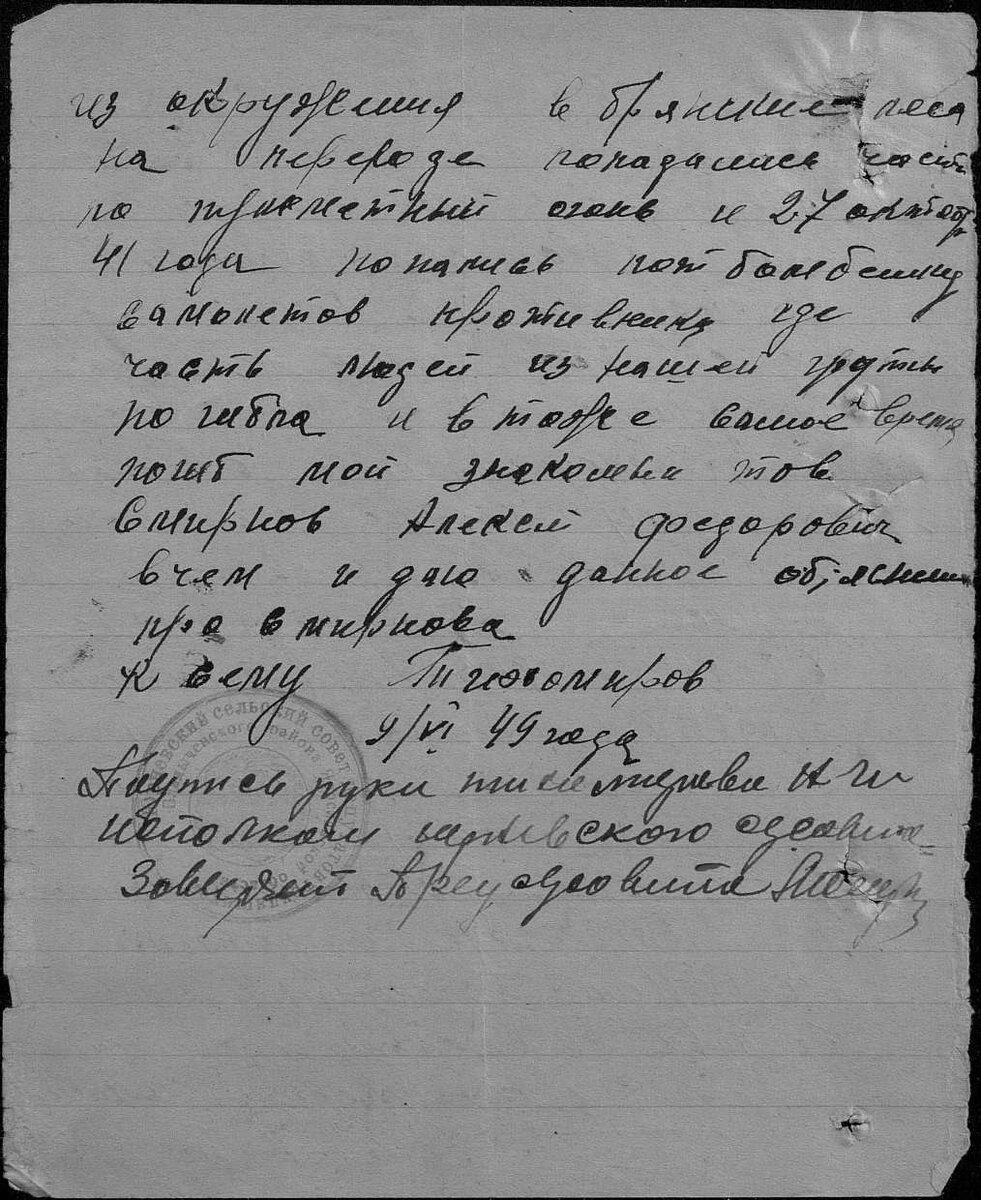 из окружения в брянские леса
на переходе попадались часто
по пулеметный огонь и 27 октября
41 года попались пот бомбешку
самолетов противника где
часть людей из нашей группы
погибла и в тоже самое время
погиб мой знакомы тов
Смирнов Алексей Федорович
в чем и даю данное объяснени
про Смирнова
к сему Тихомиров
9/VI 49 года
Паупись руки тихомирова А И
исполком сельсовита
Заверяет Преусесовита